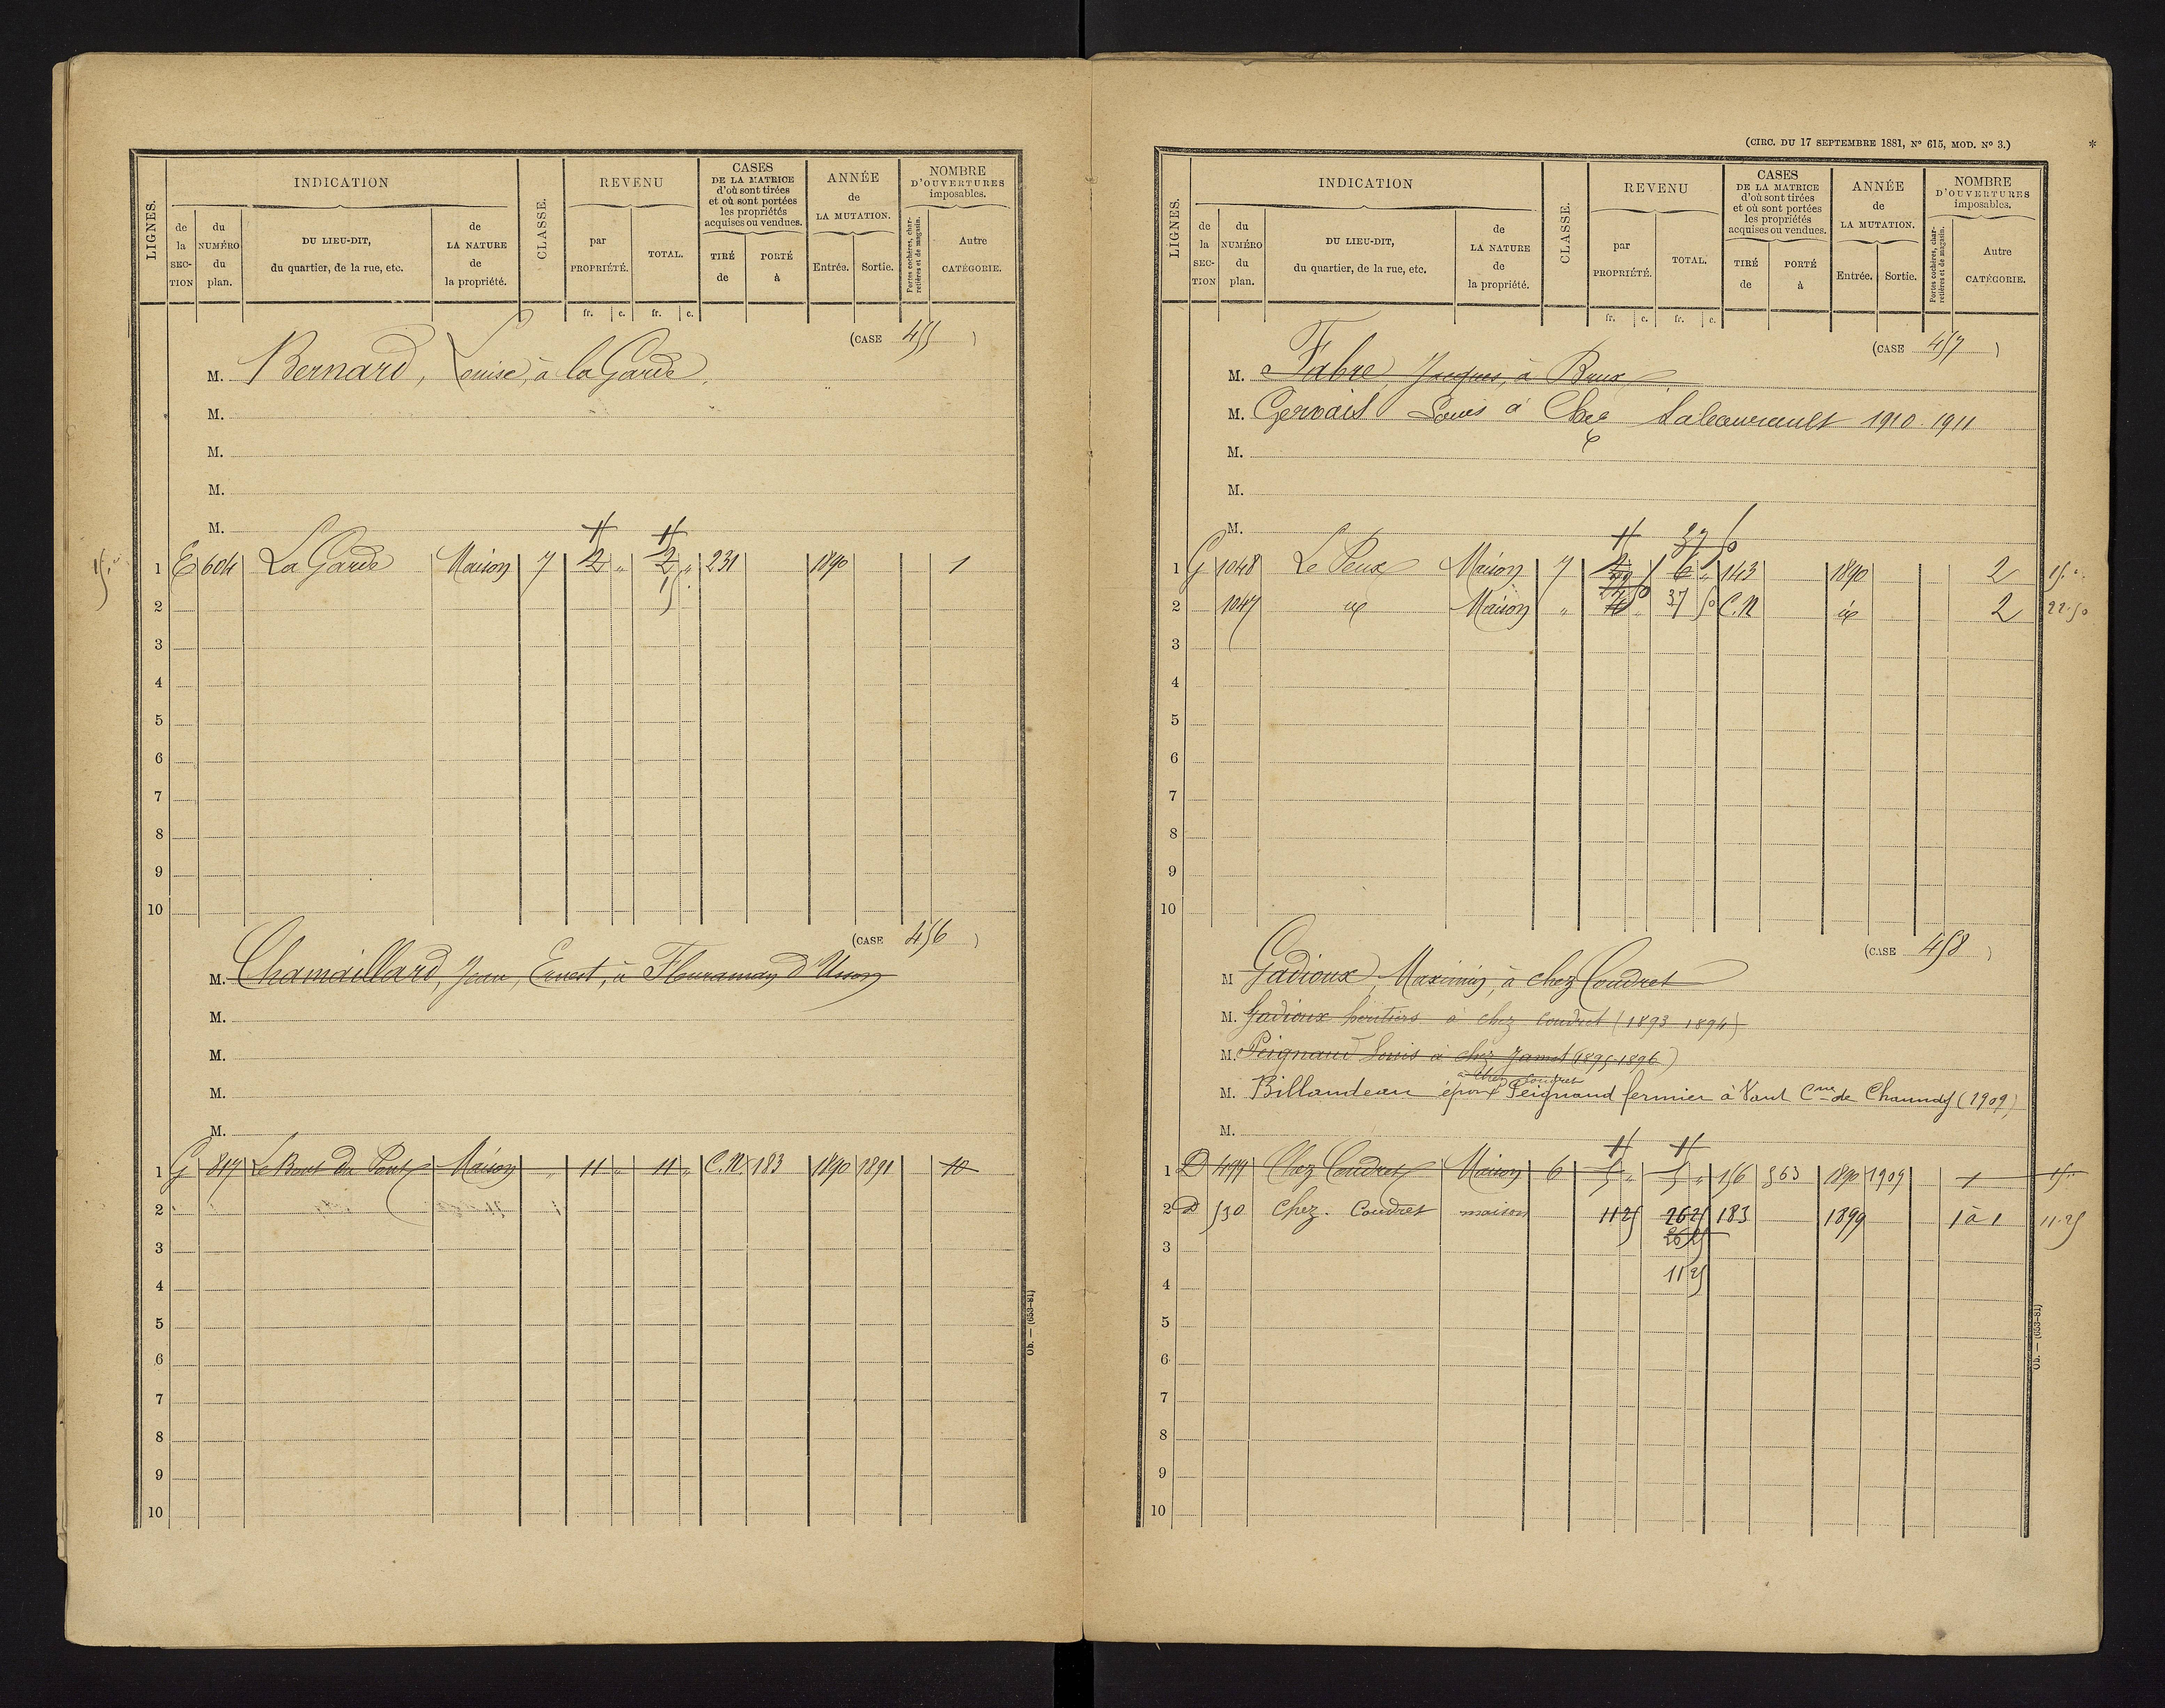 LIGNES.
INDICATION
de la SECTION
du NUMÉRO du plan.
DU LIEU-DIT, du quartier, de la rue, etc.
de LA NATURE de la propriété.
CLASSE.
REVENU
par PROPRIÉTÉ.
TOTAL.
fr. c. fr. c.
CASES DE LA MATRICE d'où sont tirées et où sont portées les propriétés acquises ou vendues.
TIRÉ de
PORTÉ à
ANNÉE de LA MUTATION.
Entrée. Sortie.
NOMBRE D'OUVERTURES imposables.
Portes cochères, charretières et de magasin.
Autre CATÉGORIE.
(CASE 455 )
M. Bernard, Louise, à la Garde
M.
M.
M.
M.
1 E 604 La Garde Maison 7 2 " 2 " 231 1890 1
2 15
3
4
5
6
7
8
9
10
(CASE 456 )
M. Chamaillard, Jean, Ernest, à d'Usson
M.
M.
M.
M.
1 G 817 Le Bout du Pont Maison " 11 " 11 " C.N 183 1890 1891 10
2
3
4
5
6
7
8
9
10
Ob. — (653-81)
(CIRC. DU 17 SEPTEMBRE 1881, N° 615, MOD. N° 3.)
*
LIGNES.
INDICATION
de la SECTION
du NUMÉRO du plan.
DU LIEU-DIT, du quartier, de la rue, etc.
de LA NATURE de la propriété.
CLASSE.
REVENU
par PROPRIÉTÉ.
TOTAL.
fr. c. fr. c.
CASES DE LA MATRICE d'où sont tirées et où sont portées les propriétés acquises ou vendues.
TIRÉ de
PORTÉ à
ANNÉE de LA MUTATION.
Entrée. Sortie.
NOMBRE D'OUVERTURES imposables.
Portes cochères, charretières et de magasin.
Autre CATÉGORIE.
(CASE 457 )
M. Fabre, Jacques, à
M. Gervais Louis à Chez 1910 1911
M.
M.
M.
37 50
1 G 1048 Le Peux Maison 7 6 " 143 1890 2 15 "
2 1047 Maison " 37 50 C.N 2 22.50
3
4
5
6
7
8
9
10
(CASE 458 )
M Gadioux, Maximin, à chez Coudret
M. Gadioux héritiers à chez Coudret (1893-1894)
M. Peignaud Louis à chez Jamet (1895-1896)
à Chez Coudret
M. Billaudeau époux Peignaud fermier à Vaut Cne de Chaunay (1909)
M.
1 D 499 Chez Coudret Maison 6 5 " 5 " 156 563 1890 1909 1 15 "
2 D 530 Chez Coudret maison 11 25 26 25 183 1899 1 à 1 11.25
3 26 25
4 11 25
5
6
7
8
9
10
Ob. — (653-81)